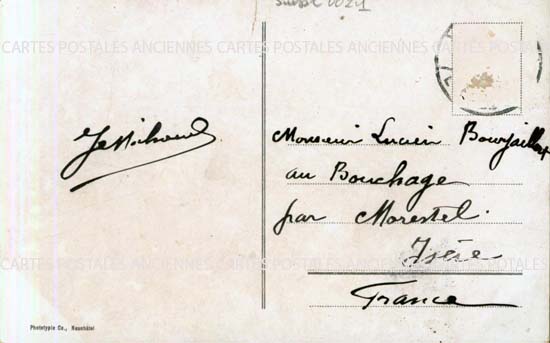 suisse
CARTES POSTALES ANCIENNES CARTES POSTALES ANCIENNES CARTES POSTALES
Monsieur Lucien Bourjaillat
au Bouchage
par Morestel.
Isère
France
CARTES POSTALES ANCIENNES CARTES POSTALES ANCIENNES CARTES POSTALES
Phototypie Co., Neuchâtel